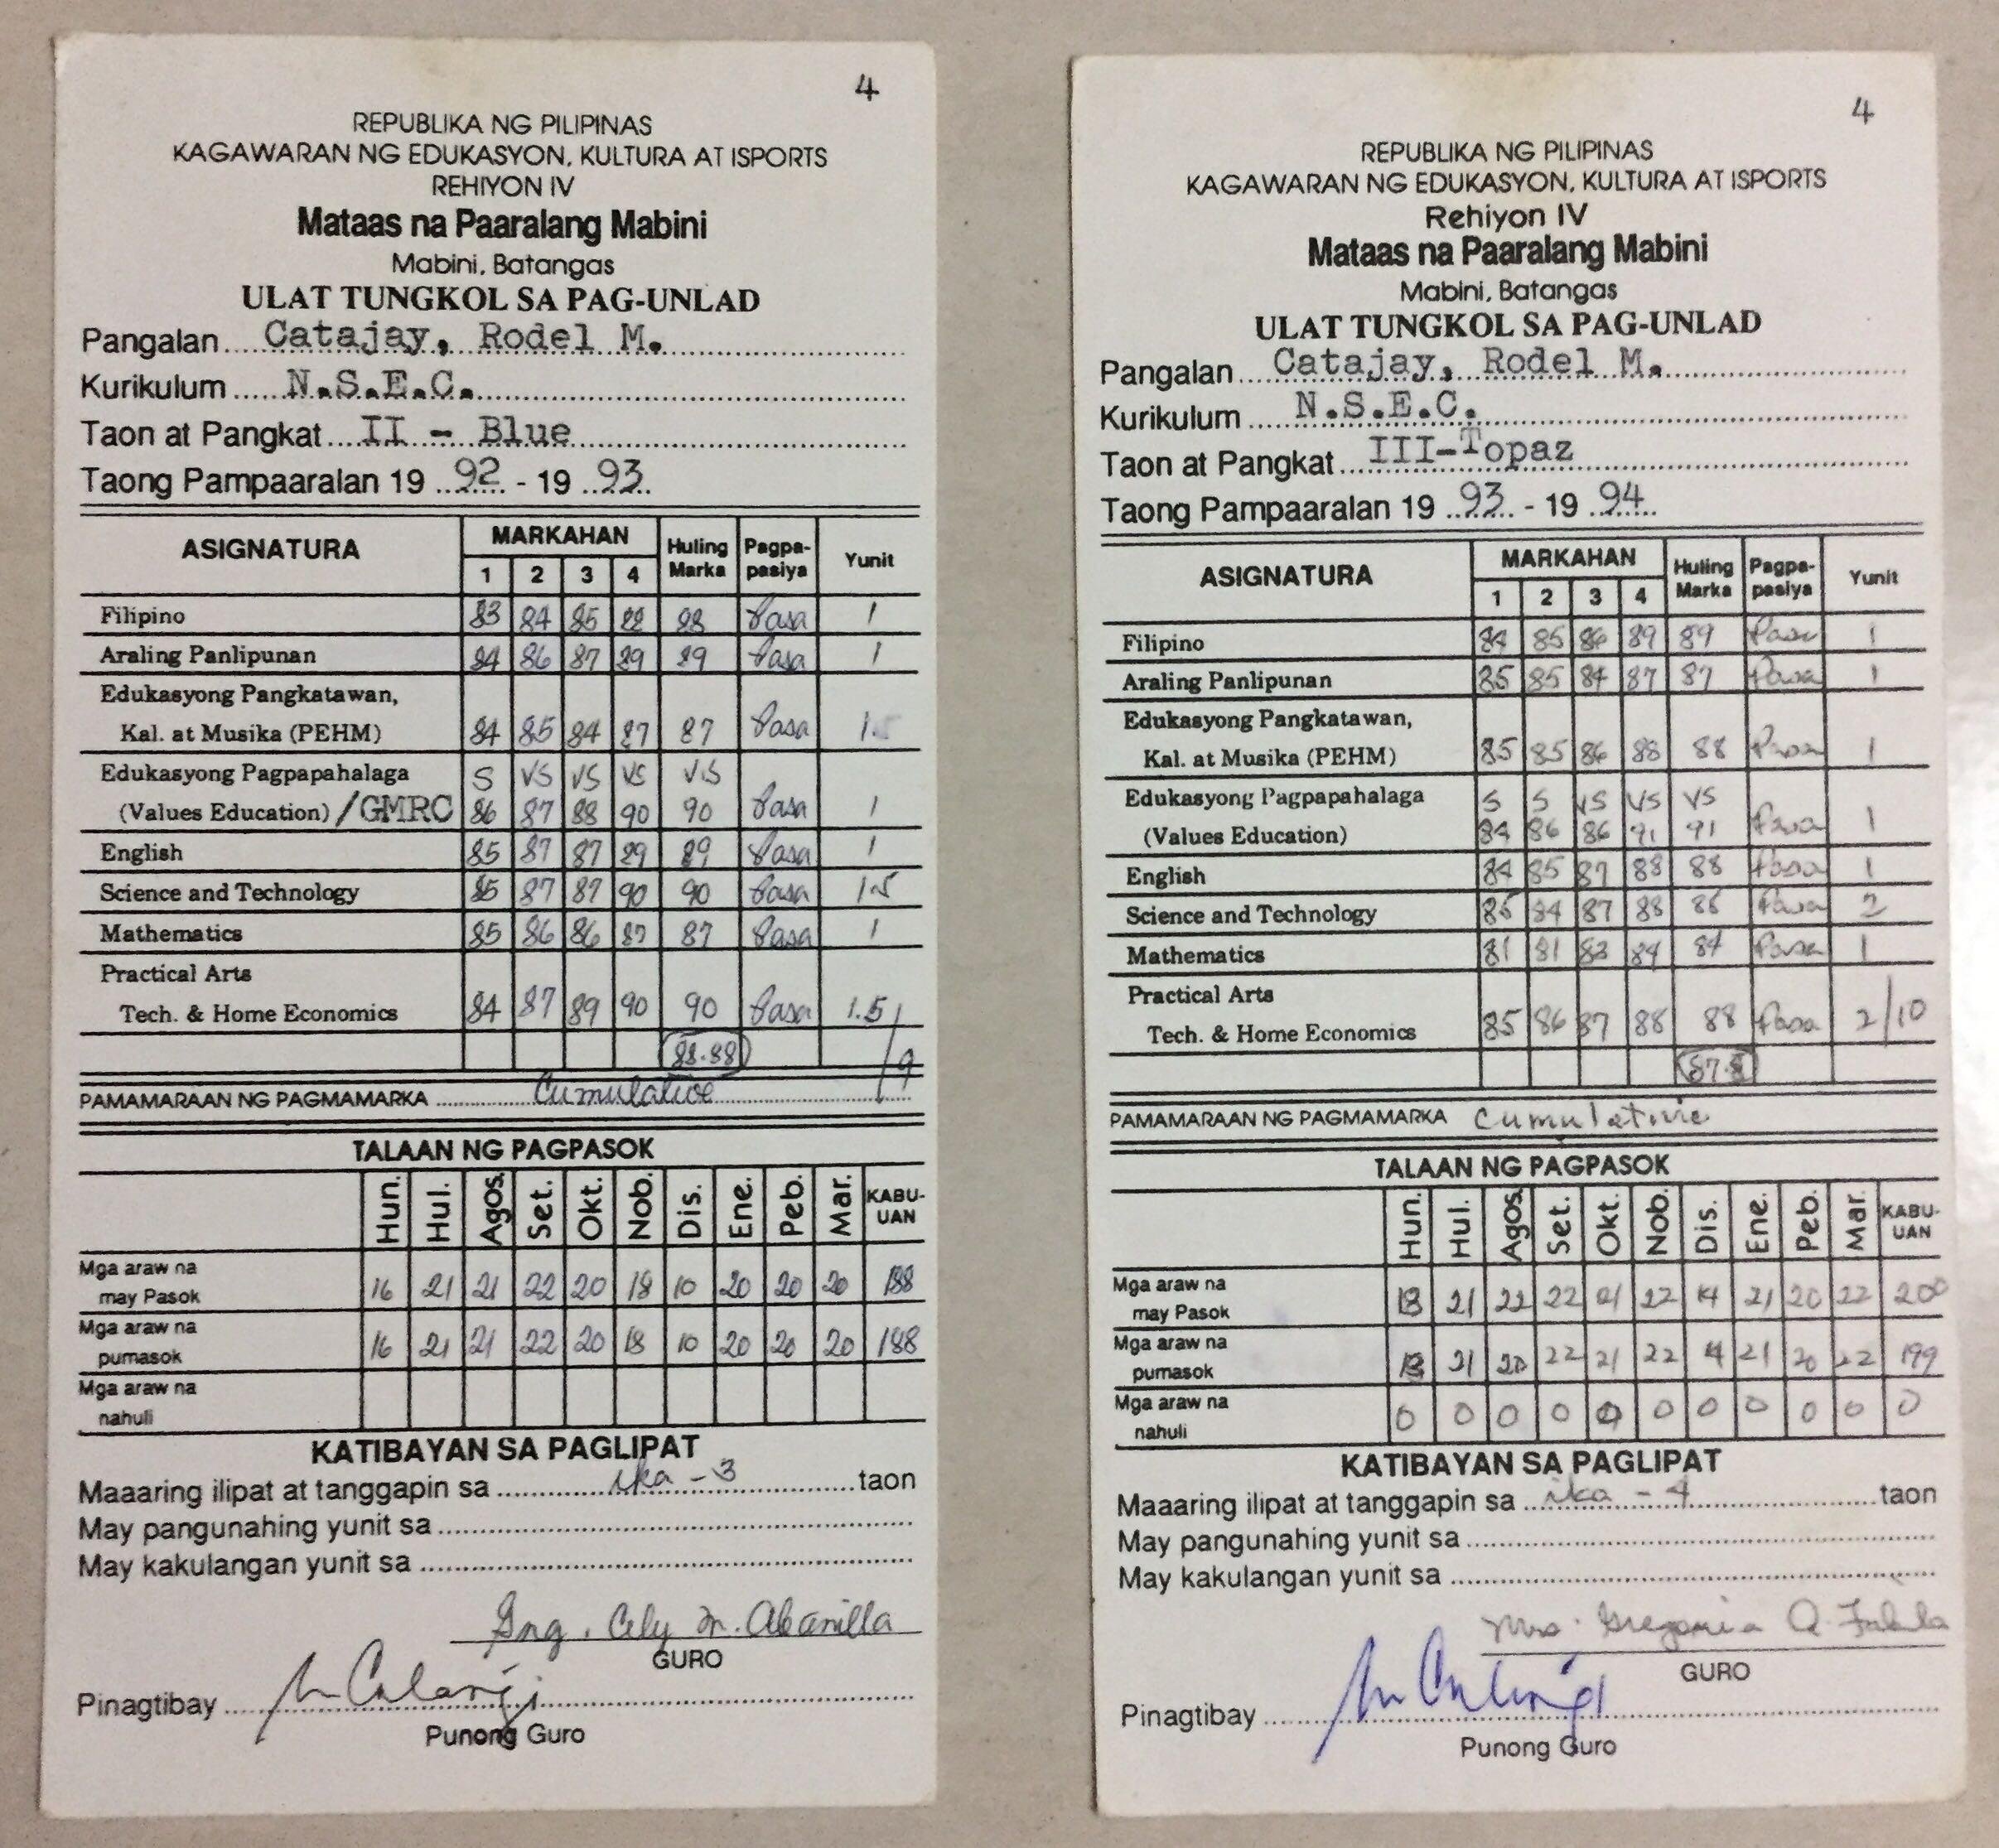 4
REPUBLIKA NG PILIPINAS
KAGAWARAN NG EDUKASYON, KULTURA AT ISPORTS
REHIYON IV
Mataas na Paaralang Mabini
Mabini, Batangas
ULAT TUNGKOL SA PAG-UNLAD
Pangalan Catajay, Rodel M.
Kurikulum N.S.E.C.
Taon at Pangkat II - Blue
Taong Pampaaralan 19 92 - 19 93
ASIGNATURA MARKAHAN Huling Marka Pagpa-pasiya Yunit
1 2 3 4
Filipino 83 84 85 88 88 Pasa 1
Araling Panlipunan 84 86 87 89 89 Pasa 1
Edukasyong Pangkatawan,
Kal. at Musika (PEHM) 84 85 84 87 87 Pasa 1.5
Edukasyong Pagpapahalaga S VS VS VS VS
(Values Education) /GMRC 86 87 88 90 90 Pasa 1
English 85 87 87 89 89 Pasa 1
Science and Technology 85 87 87 90 90 Pasa 1.5
Mathematics 85 86 86 87 87 Pasa 1
Practical Arts
Tech. & Home Economics 84 87 89 90 90 Pasa 1.5/9
88.88
PAMAMARAAN NG PAGMAMARKA Cumulative
TALAAN NG PAGPASOK
Hun. Hul. Agos. Set. Okt. Nob. Dis. Ene. Peb. Mar. KABU-UAN
Mga araw na
may Pasok 16 21 21 22 20 18 10 20 20 20 188
Mga araw na
pumasok 16 21 21 22 20 18 10 20 20 20 188
Mga araw na
nahuli
KATIBAYAN SA PAGLIPAT
Maaaring ilipat at tanggapin sa ika-3 taon
May pangunahing yunit sa
May kakulangan yunit sa
Gng. Cely M. Abanilla
GURO
Pinagtibay
Punong Guro
4
REPUBLIKA NG PILIPINAS
KAGAWARAN NG EDUKASYON, KULTURA AT ISPORTS
Rehiyon IV
Mataas na Paaralang Mabini
Mabini, Batangas
ULAT TUNGKOL SA PAG-UNLAD
Pangalan Catajay, Rodel M.
Kurikulum N.S.E.C.
Taon at Pangkat III-Topaz
Taong Pampaaralan 19 93 - 19 94
ASIGNATURA MARKAHAN Huling Marka Pagpa-pasiya Yunit
1 2 3 4
Filipino 84 85 86 89 89 Pasa 1
Araling Panlipunan 85 85 84 87 87 Pasa 1
Edukasyong Pangkatawan,
Kal. at Musika (PEHM) 85 85 86 88 88 Pasa 1
Edukasyong Pagpapahalaga S S VS VS VS
(Values Education) 84 86 86 91 91 Pasa 1
English 84 85 87 88 88 Pasa 1
Science and Technology 85 84 87 88 Pasa 2
Mathematics 81 81 83 84 84 Pasa 1
Practical Arts
Tech. & Home Economics 85 86 87 88 88 Pasa 2/10
PAMAMARAAN NG PAGMAMARKA Cumulative
TALAAN NG PAGPASOK
Hun. Hul. Agos. Set. Okt. Nob. Dis. Ene. Peb. Mar. KABU-UAN
Mga araw na
may Pasok 21 22 22 21 22 14 21 20 22 200
Mga araw na
pumasok 21 22 21 22 21 20 22 199
Mga araw na
nahuli 0 0 0 0 0 0 0 0 0 0 0
KATIBAYAN SA PAGLIPAT
Maaaring ilipat at tanggapin sa ika-4 taon
May pangunahing yunit sa
May kakulangan yunit sa
Mrs. Gregoria Q.
GURO
Pinagtibay
Punong Guro